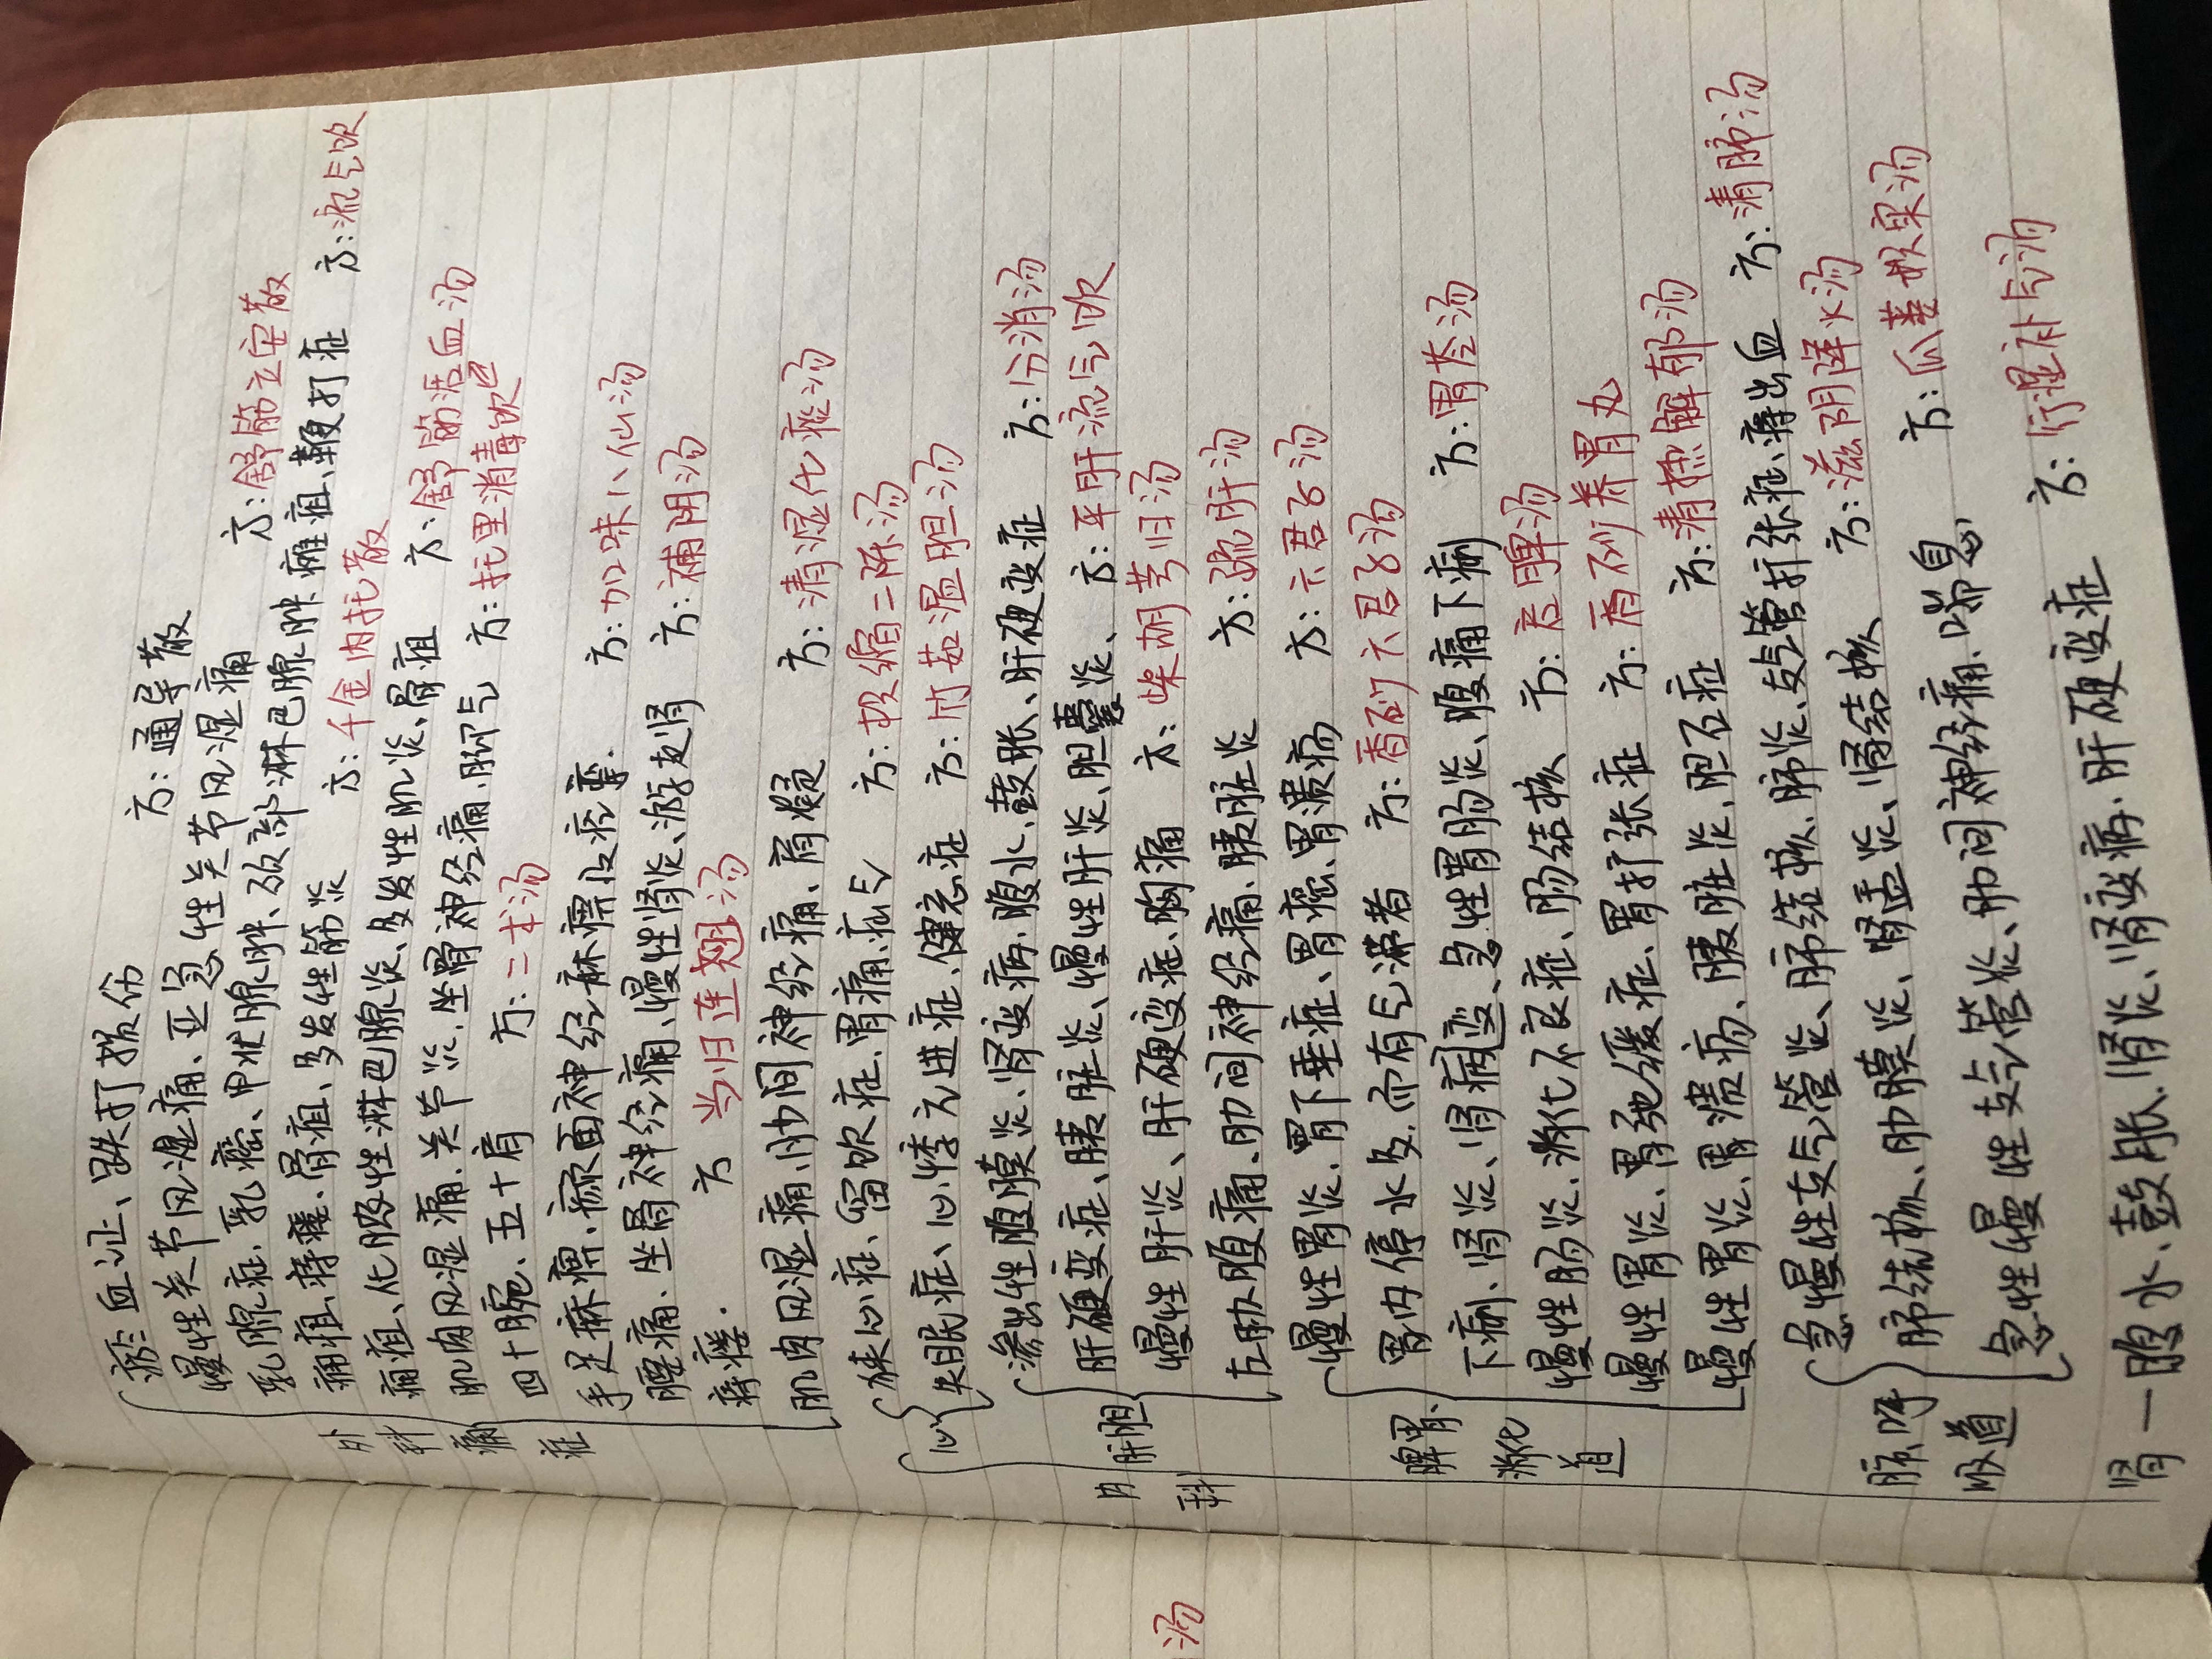 瘀血证、跌打损伤 方:通导散
慢性关节风湿痛、亚急性关节风湿痛 方:舒筋立安散
乳腺症、乳癌、甲状腺肿、颈部淋巴腺肿 瘫疽、鞭打症 方:流气饮
痈疽、痔瘘、骨疽、多发性筋炎 方:千金内托散
痈疽、化脓性淋巴腺炎、多发性肌炎、骨疽
肌肉风湿痛、关节炎、坐骨神经痛、脚气 方:舒筋活血汤
方:托里消毒饮
四十腕、五十肩 方:二术汤
手足麻痹、颜面神经麻痹及痉挛. 方:加味八仙汤
腰痛、坐骨神经痛、慢性肾炎、游走肾 方:補阴汤
痔瘘. 方 当归连翘汤
肌肉风湿痛、肋间神经痛、肩凝 方:清湿化痰汤
狭心症、留饮症、胃痛、疝气 方:枳缩二陈汤
失眠症、心悸亢进症、健忘症 方:竹茹温胆汤
渗出性腹膜炎、肾变病、腹水、鼓胀、肝硬变症 方:分消汤
肝硬变症、胰脏炎、慢性肝炎、胆囊炎、 方:平肝流气饮
慢性肝炎、肝硬变症、胸痛 方:柴胡芎归汤
左肋腹痛、肋间神经痛、胰脏炎 方:疏肝汤
慢性胃炎、胃下垂症、胃癌、胃溃疡 方:六君子汤
胃内停水多,而有气滞者 方:香砂六君子汤
下痢、肾炎、肾病变、急性胃肠炎、腹痛下痢 方:胃苓汤
慢性肠炎、消化不良症、肠结核 方:启脾汤
慢性胃炎、胃弛缓症、胃扩张症 方:香砂养胃丸
慢性胃炎、胃溃疡、胰脏炎、胆石症 方:清热解郁汤
急慢性支气管炎、肺结核、肺炎、支气管扩张症、痔出血 方:清肺汤
肺结核、肋膜炎、肾盂炎、肾结核 方:滋阴降火汤
急性慢性支气管炎、肋间神经痛、喘息 方:瓜蒌枳实汤
肾一腹水、鼓胀、肾炎、肾变病、肝硬变症 方:行湿补气汤
外科痛症
内科
心
肝胆
脾胃、消化道
肺呼吸道
汤